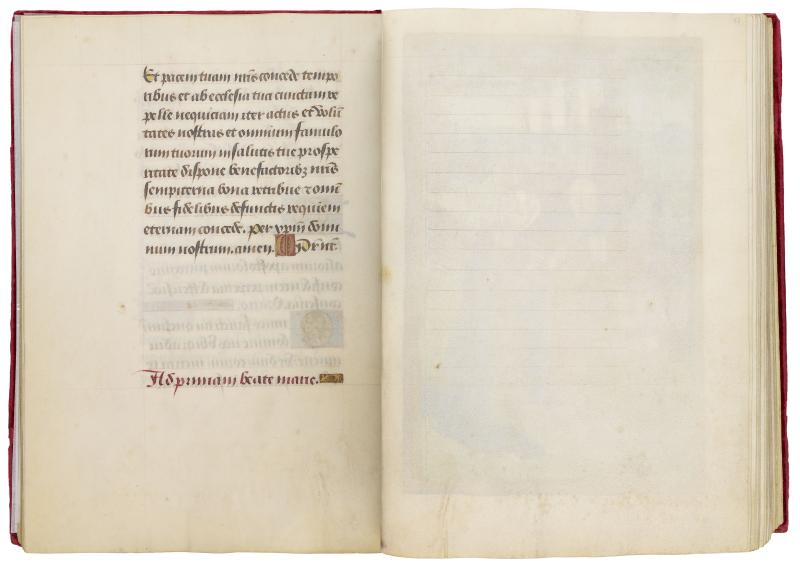 Et pacem tuam nr̃is concede tempo
ribus et ab ecclesia tua cunctam re
pelle nequiciam iter actus et volũ
tates nostras et omnium famulo
rum tuorum in salutis tue prospe
ritate dispone benefactoribꝫ nr̃is
sempiterna bona retribue ⁊ omĩ
bus fidelibus defunctis requiem
eternam concede. per xpm̃ domi
num nostrum. amen.
Ad primam beate marie.